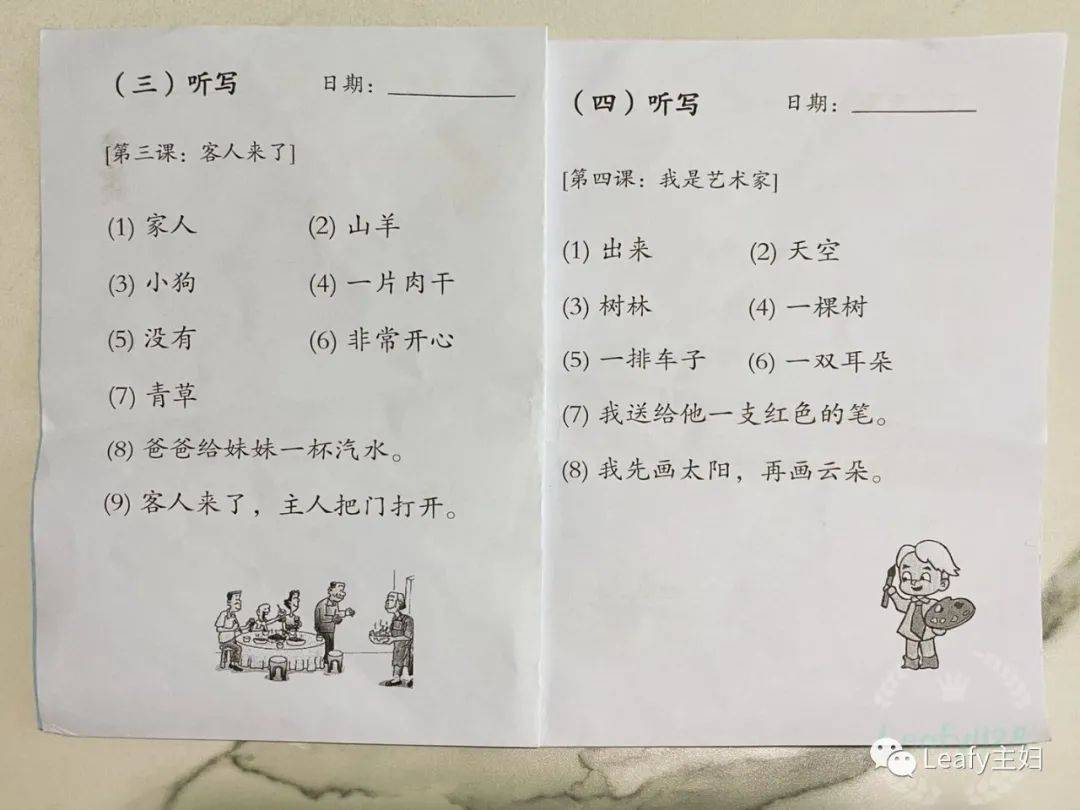 （三）听写 日期：__________
[第三课：客人来了]
(1) 家人 (2) 山羊
(3) 小狗 (4) 一片肉干
(5) 没有 (6) 非常开心
(7) 青草
(8) 爸爸给妹妹一杯汽水。
(9) 客人来了，主人把门打开。
（四）听写 日期：__________
[第四课：我是艺术家]
(1) 出来 (2) 天空
(3) 树林 (4) 一棵树
(5) 一排车子 (6) 一双耳朵
(7) 我送给他一支红色的笔。
(8) 我先画太阳，再画云朵。
Leafy主妇